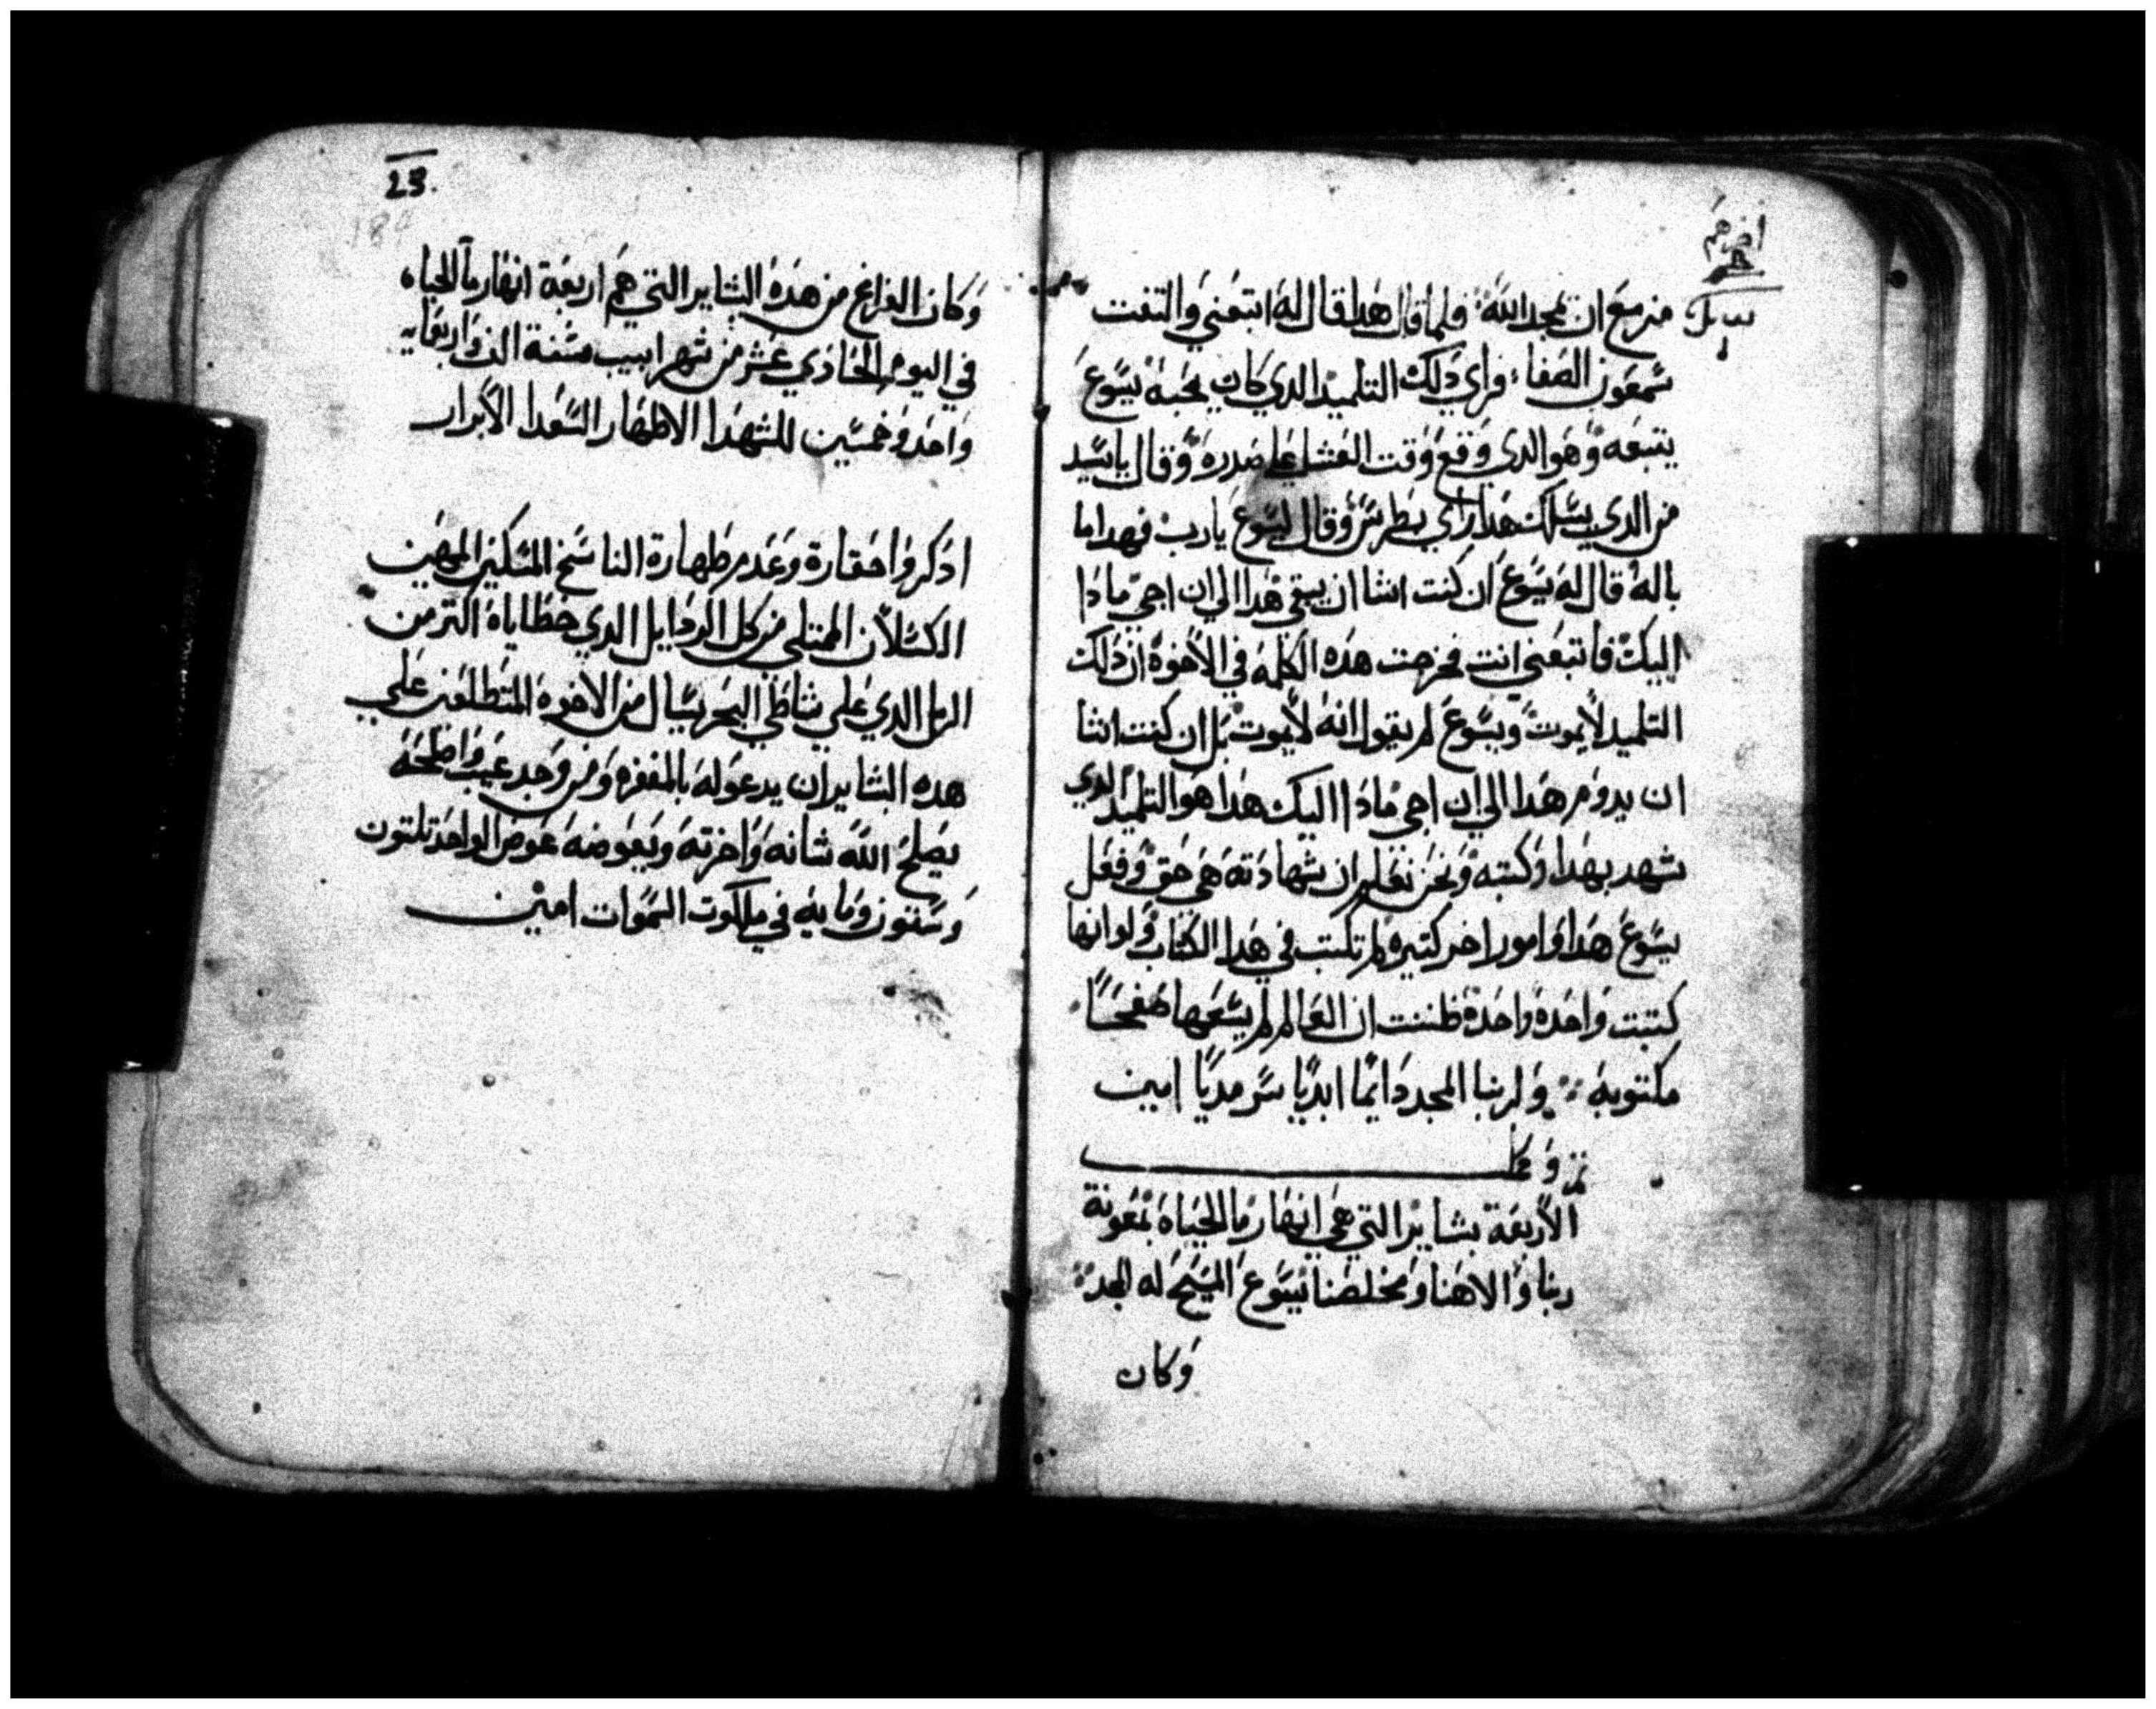 مزمع ان يمجد الله فلما قال هدا قال له اتبعني والتفت
شمعون الصفا فراي دلك التلميد الدي كان يحبه يسوع
يتبعه وهو الدي وقع وقت العشا علي صدره وقال ياسيد
من الدي يسلمك هدا راي بطرس وقال ليسوع يارب فهدا ما
باله قال له يسوع ان كنت اشا ان يبقي هدا الي ان اجي مادا
اليك فاتبعني انت فخرجت هده الكلمه في الاخوة ان دلك
التلميد لايموت ويسوع لم يقول انه لايموت بل ان كنت اشا
ان يدوم هدا الي ان اجي مادا اليك هدا هو التلميد الدي
شهد بهدا وكتبه ونحن نعلم ان شهادته هي حق وفعل
يسوع هدا وامور اخر كتيره لم تكتب في هدا الكتاب ولو انها
كتبت واحده واحدة ظننت ان العالم لم يسعها صحفًا
مكتوبه ولربنا المجد دايمًا ابديًا سرمديًا امين
تم وكمل
الاربعة بشاير التي هي انهار ما الحياه بمعونة
ربنا والاهنا ومخلصنا يسوع المسيح له المجد
وكان
23
184
وكان الفراغ من هده البشاير التي هم اربعة انهار ما الحياه
في اليوم الحادي عشر من شهر ابيب سنة الف واربعمايه
واحد وخمسين للشهدا الاطهار السعدا الابرار
ادكروا حقارة وعدم طهارة الناسخ المسكين المهين
الكسلان الممتلي من كل الردايل الدي خطاياه اكتر من
الرمل الدي علي شاطي البحر يسال من الاخوه المتطلعين علي
هده البشاير ان يدعو له بالمغفره ومن وجد عيب واصلحه
يصلح الله شانه واخرته ويعوضه عوض الواحد تلتون
وستون ومايه في ملكوت السموات امين